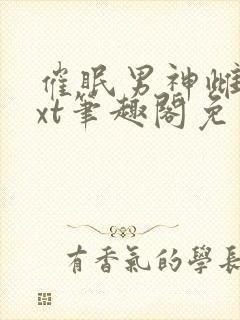 催眠男神雌
xt筆趣閣免
有香氣的學長